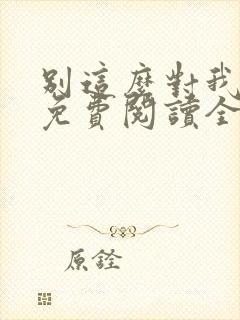 別這麼對我
免費閱讀全
原銓